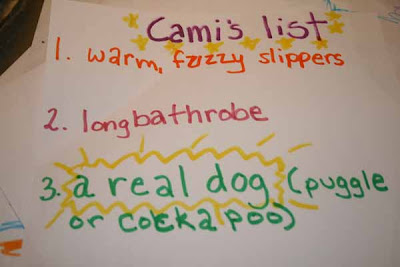 Cami's list
1. warm, fuzzy slippers
2. long bathrobe
3. a real dog (puggle
or cockapoo)